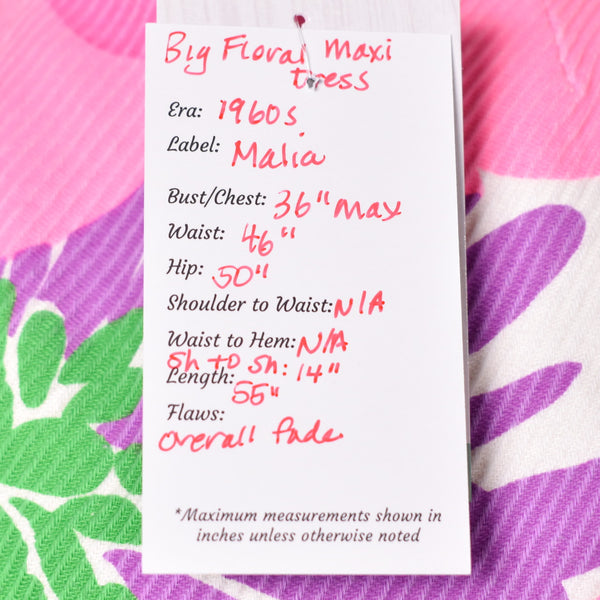 Big Floral Maxi
Dress
Era: 1960s
Label: Malia
Bust/Chest: 36" max
Waist: 46"
Hip: 50"
Shoulder to Waist: N/A
Waist to Hem: N/A
Sh to Sh: 14"
Length: 56"
Flaws:
overall fade
*Maximum measurements shown in
inches unless otherwise noted